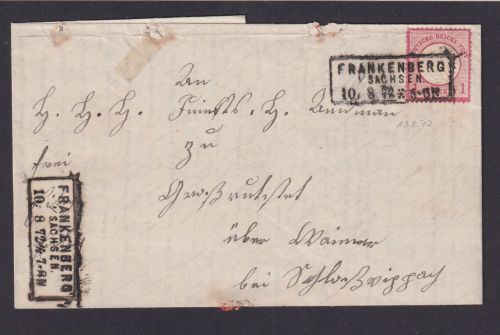 DEUTSCHE REICHS-POST
FRANKENBERG
I/SACHSEN.
10 8 72 ✱ 7-8N
1
10.8.72
An
H. H. H.
zu
frei
Großrudstet
über Weimar
bei Schloßvippach
FRANKENBERG
I/SACHSEN.
10 8 72 ✱ 7-8N